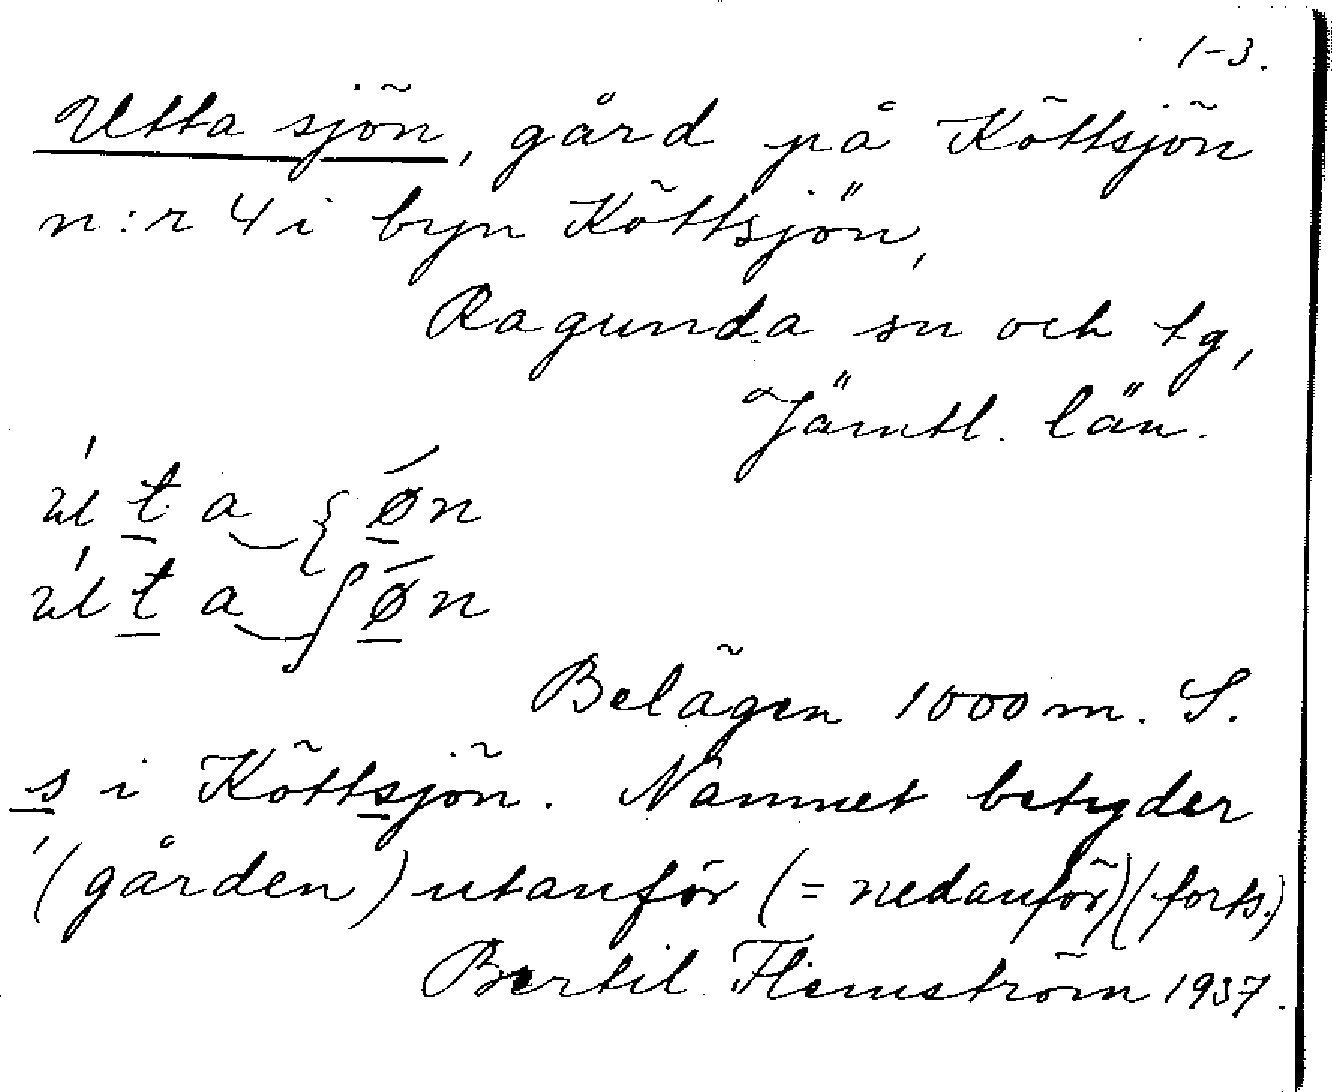 1-3.
Utta sjön, gård på Köttsjön
n:r 4 i byn Köttsjön,
Ragunda sn och tg,
Jämtl. län.
Belägen 1000 m. S.
s i Köttsjön. Namnet betyder
(gården) utanför (= nedanför) (forts.)
Bertil Flemström 1937.